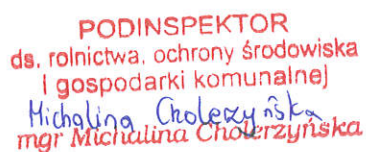 PODINSPEKTOR
ds. rolnictwa, ochrony środowiska
i gospodarki komunalnej
Michalina Cholerzyńska
mgr Michalina Cholerzyńska